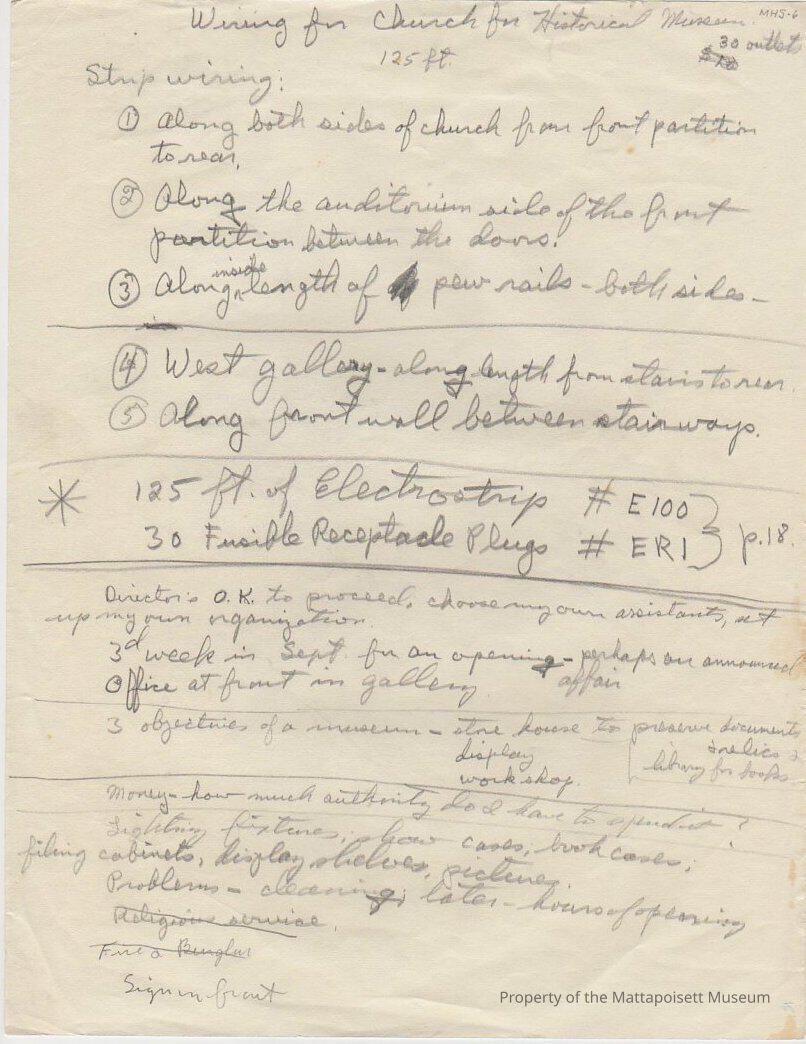 MHS-6
Wiring for Church for Historical Museum.
125 ft.
30 outlets
Strip wiring:
① Along both sides of church from front partition
to rear.
② Along the auditorium side of the front
partition between the doors.
③ Along inside length of pew rails - both sides -
④ West gallery - along length from stairs to rear.
⑤ Along front wall between stairways.
* 125 ft. of Electrostrip # E100
30 Fusible Receptacle Plugs # ER1 } p.18.
Director's O.K. to proceed, choose my own assistants, set
up my own organization.
3d week in Sept. for an opening - perhaps an announced
affair
Office at front in gallery
3 objectives of a museum - store house to preserve documents
& relics &
display
library for books
workshop.
Money - how much authority do I have to spend it?
Lighting fixtures, show cases, book cases,
filing cabinets, display shelves, pictures.
Problems - cleaning; later - hours of opening
Religious service.
Fire & Burglar
Sign in front
Property of the Mattapoisett Museum